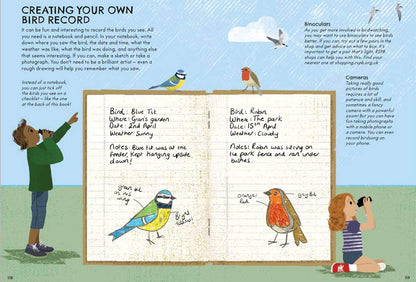 CREATING YOUR OWN
BIRD RECORD
It can be fun and interesting to record the birds you see. All
you need is a notebook and pencil. In your notebook, write
down where you saw the bird, the date and time, what the
weather was like, what the bird was doing, and anything else
that seems interesting. If you can, make a sketch or take a
photograph. You don't need to be a brilliant artist – even a
rough drawing will help you remember what you saw.
Instead of a notebook,
you can just tick off
the birds you see on a
checklist – like the one
at the back of this book!
Bird: Blue Tit
Where: Gran's garden
Date: 2nd April
Weather: Sunny
Notes: Blue tit was at the
feeder. Kept hanging upside
down!
green
on its
wing
Bright
yellow!
Bird: Robin
Where: The park
Date: 15th April
Weather: Cloudy
Notes: Robin was sitting on
the park fence and ran under
bushes.
orange/
red
Binoculars
As you get more involved in birdwatching,
you may want to use binoculars to see birds
better. If you can, try out a few pairs in the
shop and get advice on what to buy. It's
important to get a pair that's light. RSPB
shops can help you with this. Find your
nearest one at shopping.rspb.org.uk
Cameras
Taking really good
pictures of birds
requires a lot of
patience and skill, and
sometimes a fancy
camera with a powerful
zoom! But you can have
fun taking photographs
with a mobile phone or
a camera. You can even
record birdsong on
your phone.